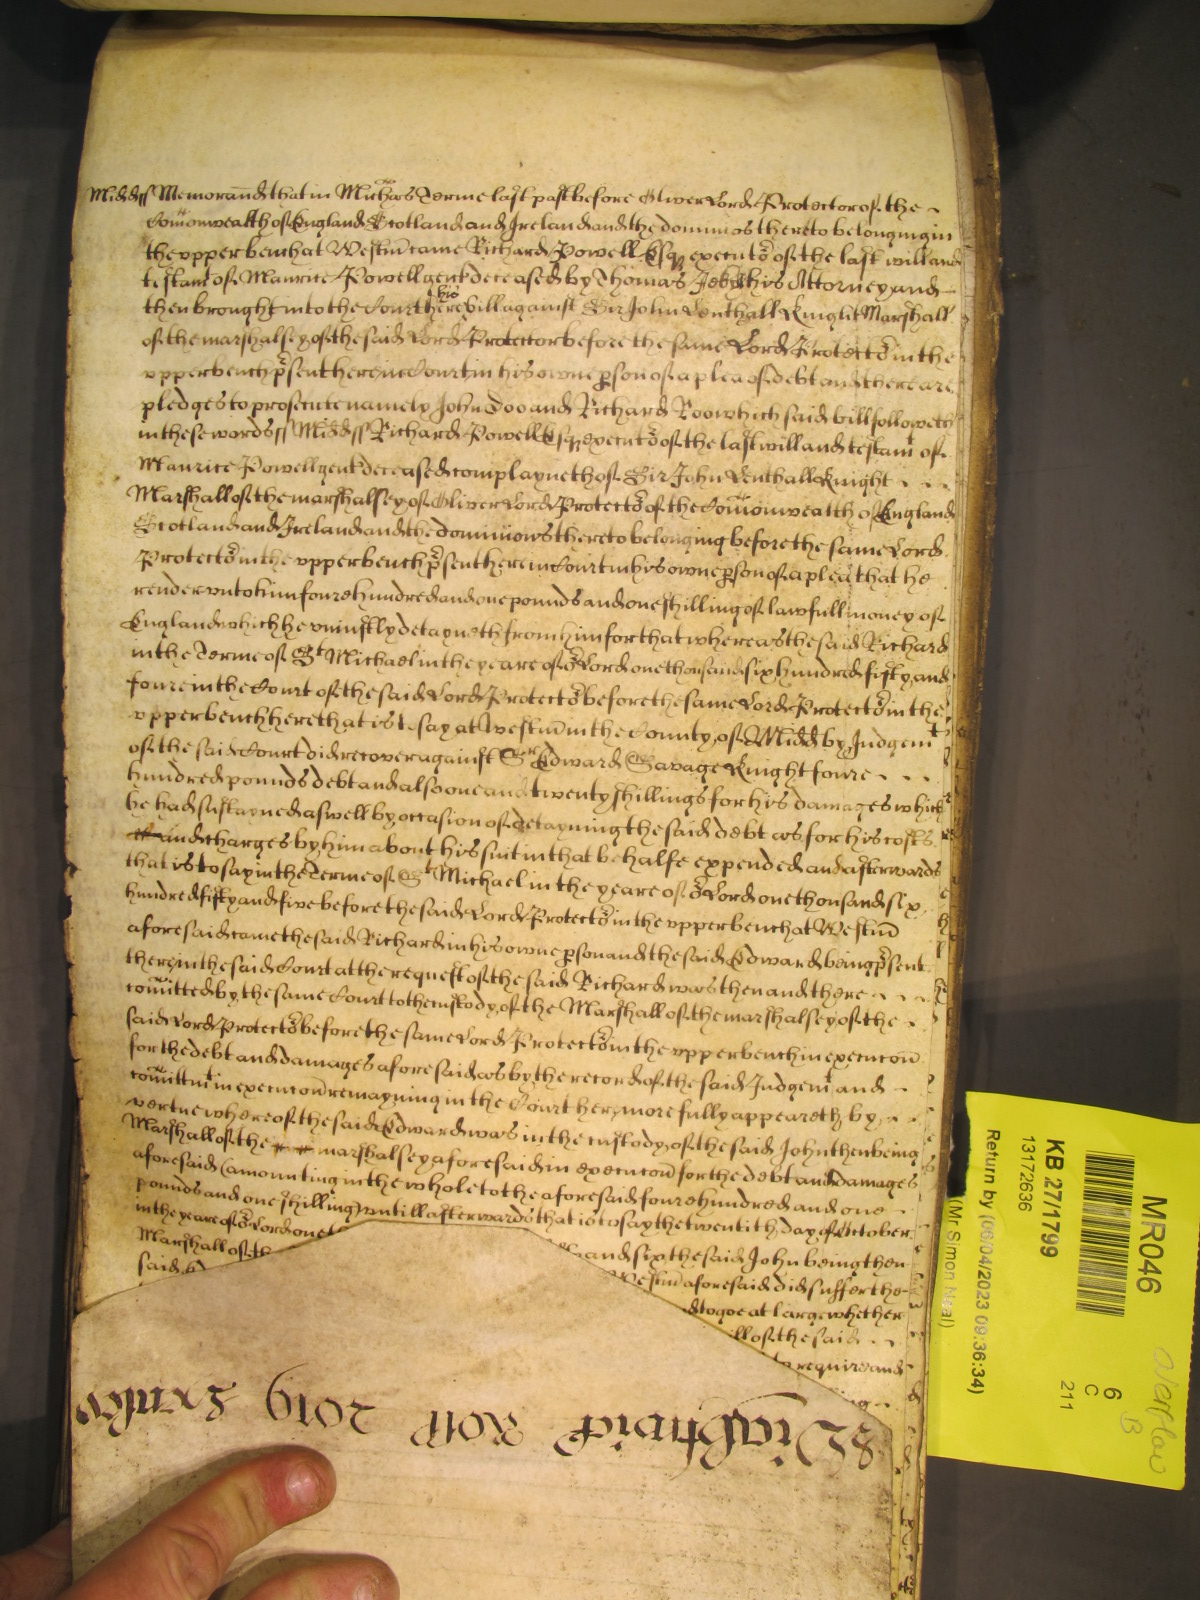 Midds ss Memorand that in Michas Terme last past before Oliver Lord Protector of the
Comonwealth of England Scotland and Ireland and the dominios thereto belonging in
the vpper bench at Westm came Richard Powell Esq executor of the last will and
testamt of Maurice Powell gent deceased by Thomas his Attorney and
then brought into the Court here his bill against Sir John Lenthall Knight Marshall
of the marshalsey of the said Lord Protector before the same Lord Protector in the
vpper bench psent here in Court in his owne pson of a plea of debt and there are
pledges to prosecute namely John Doo and Richard Roo which said bill followeth
in these words ss Midd ss Richard Powell Esq executor of the last will and testamt of
Maurice Powell gent deceased complayneth of Sir John Lenthall Knight
Marshall of the marshalsey of Oliver Lord Protector of the Comonwealth of England
Scotland and Ireland and the dominions thereto belonging before the same Lord
Protector in the vpper bench psent here in Court in his owne pson of a plea that he
render vnto him foure hundred and one pounds and one shilling of lawfull money of
England which he vniustly detayneth from him for that whereas the said Richard
in the Terme of St Michael in the yeare of or Lord one thousand six hundred fifty and
foure in the Court of the said Lord Protector before the same Lord Protector in the
vpper bench here that is to say at Westm in the County of Midd by Judgemt
of the said Court did recover against Sr Edward Savage Knight foure
hundred pounds debt and also one and twenty shillings for his damages which
he had sustayned aswell by occasion of detayning the said debt as for his costs
and charges by him about his suit in that behalfe expended and afterwards
that is to say in the Terme of St Michael in the yeare of or Lord one thousand six
hundred fifty and five before the said Lord Protector in the vpper bench at Westm
aforesaid came the said Richard in his owne pson and the said Edward being psent
there in the said Court at the request of the said Richard was then and there
comitted by the same Court to the custody of the Marshall of the marshalsey of the
said Lord Protector before the same Lord Protector in the vpper bench in execucon
for the debt and damages aforesaid as by the record of the said Judgemt and
comittmt in execucon remayning in the Court here more fully appeareth by
vertue whereof the said Edward was in the custody of the said John then being
Marshall of the marshalsey aforesaid in execucon for the debt and damages
aforesaid (amounting in the whole to the aforesaid foure hundred and one
pounds and one shilling) vntill afterwards that is to say the twentith day of October
in the yeare of or Lord one t and six the said John being then
Marshall of th Westm aforesaid did suffer the
said Ed d to goe at large whether
ill of the said
to require and
ing
Roll 2019
MR046
KB 27/1799
13172636
Return by (06/04/2023 09:36:34)
(Mr Simon Neal)
6
C
211
overflow
B